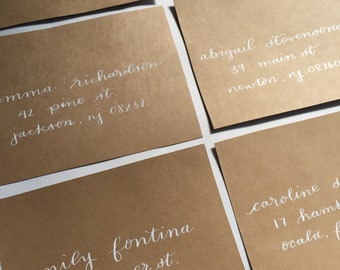 emma richardson
42 pine st.
jackson, nj 08237
abigail stevenson
39 main st
newton, nj 0876
emily fontina
st.
caroline s
17 ham
ocala, f